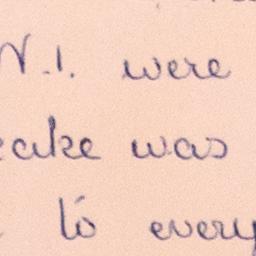 W.I. were
eake was
to every